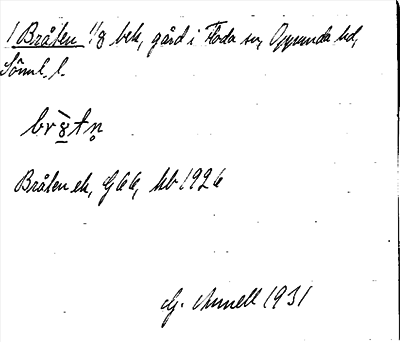 1 Bråten 1/8 bek, gård i Floda sn, Oppunda hd,
Söml. l.
brὰtn̥
Bråten ek, G 66, hb 1926
G. Annell 1931